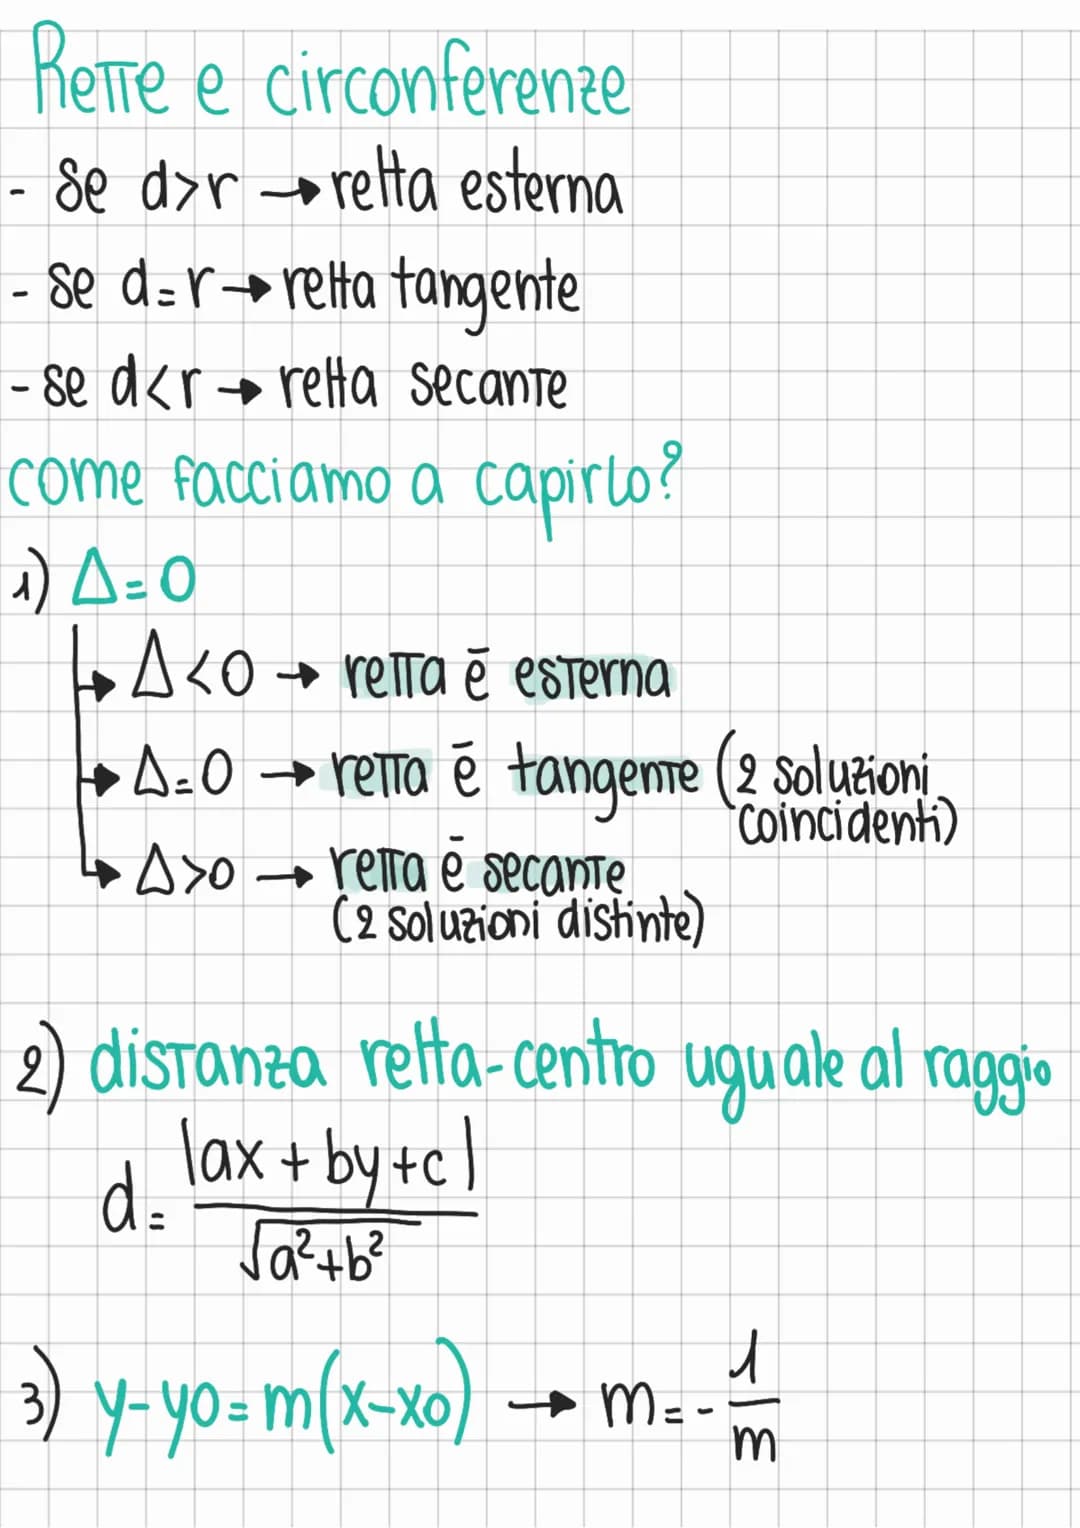 Rette e circonferenze
- se d>r → retta esterna
- se d=r → retta tangente
- se d<r → retta secante
come facciamo a capirlo?
1) Δ=0
Δ<0 → retta ē esterna
Δ=0 → retta ē tangente (2 soluzioni
coincidenti)
Δ>0 → retta ē secante
(2 soluzioni distinte)
2) distanza retta-centro uguale al raggio
d= |ax + by+c| / √a²+b²
3) y-y0=m(x-x0) → m=-1/m